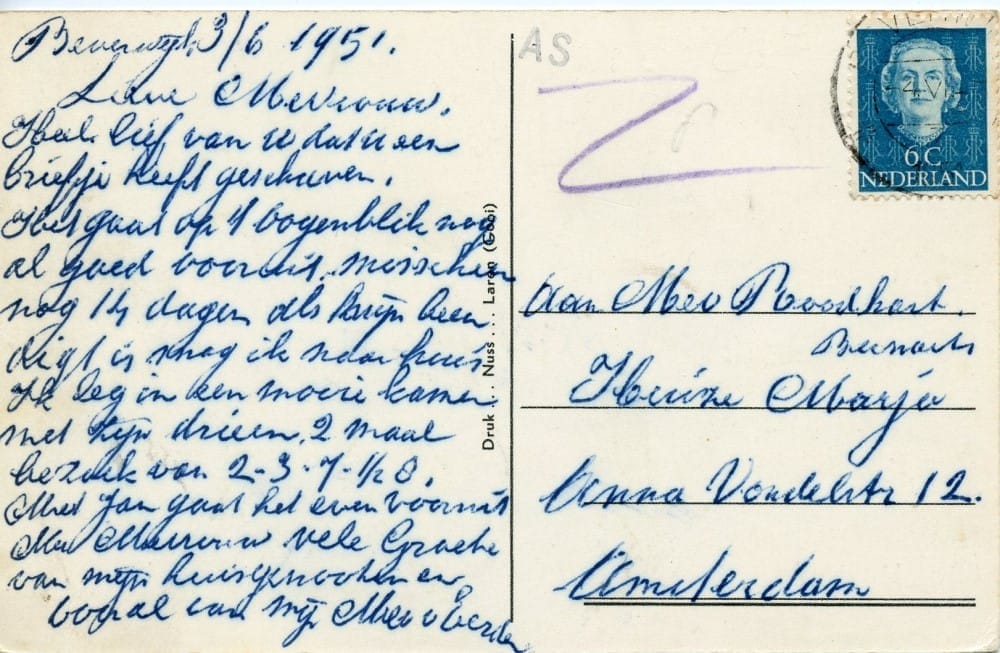 Beverwijk 3/6 1951.
Lieve Mevrouw.
Heel lief van U dat U een
briefje heeft geschreven.
Het gaat op 't oogenblik nog
al goed vooruit, misschien
nog 14 dagen als been
digt is mag ik naar huis
Ik leg in een mooie kamer
met zijn drieen, 2 maal
bezoek van 2-3-7-1/2 8.
Met Jan gaat het even vooruit
Mevrouw vele Groete
van mijn huisgenooten en
vooral van mij Mev v Eerden
Druk .. Nuss ... Laren (Gooi)
AS
6 C
NEDERLAND
Aan Mev Roodhart.
Huize Marja
Anna Vondelstr 12.
Amsterdam